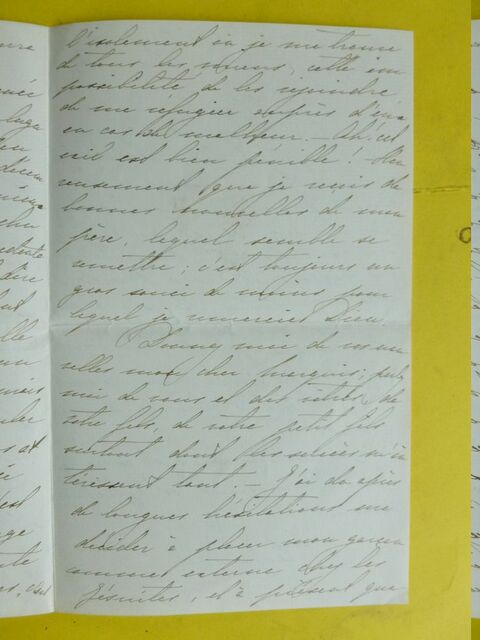 l'isolement où je me trouve
de tous les miens, cette im
possibilité de les rejoindre
de me réfugier auprès d'eux
en cas de malheur. – Ah! cet
exil est bien pénible! Heu
reusement que je reçois de
bonnes nouvelles de mon
père, lequel semble se
remettre; c'est toujours un
gros souci de moins pour
lequel je remercie Dieu.
Donnez moi de vos nou
velles mon cher marquis; parlez
moi de vous et des vôtres, de
votre fils, de votre petit fils
surtout dont les m'in
téressent tant. – J'ai dû après
de longues hésitations me
décider à placer mon garçon
comme externe chez les
Jésuites, et à présent que